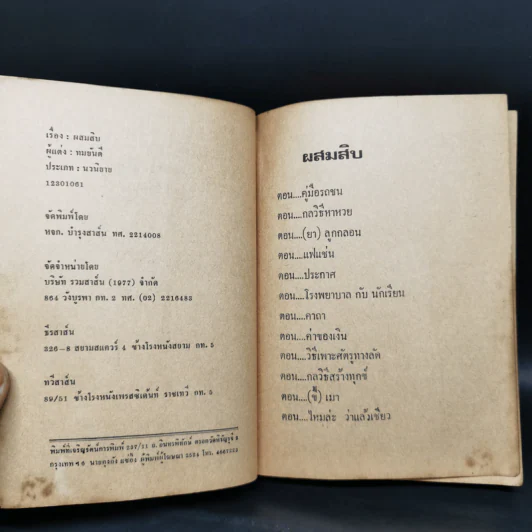 เรื่อง : ผสมสิบ
ผู้แต่ง : ทมยันตี
ประเภท : นวนิยาย
12301061
จัดพิมพ์โดย
หจก. บำรุงสาส์น ทศ. 2214008
จัดจำหน่ายโดย
บริษัท รวมสาส์น (1977) จำกัด
864 วังบูรพา กท. 2 ทศ. (02) 2216483
ธีรสาส์น
226-8 สยามสแควร์ 4 ข้างโรงหนังสยาม กท. 5
ทวีสาส์น
89/51 ข้างโรงหนังเพรสซิเด้นท์ ราชเทวี กท. 5
พิมพ์ที่เจริญรัตน์การพิมพ์
กรุงเทพฯ ผู้พิมพ์ผู้โฆษณา
ผสมสิบ
ตอน....คู่มือรถชน
ตอน....กลวิธีหาหวย
ตอน....(ยา) ลูกกลอน
ตอน....แฟแช่น
ตอน....ประกาศ
ตอน....โรงพยาบาล กับ นักเรียน
ตอน....คาถา
ตอน....ค่าของเงิน
ตอน....วิธีเพาะศัตรูทางลัด
ตอน....กลวิธีสร้างทุกข์
ตอน....(ขี้) เมา
ตอน....ไหมล่ะ ว่าแล้วเชียว